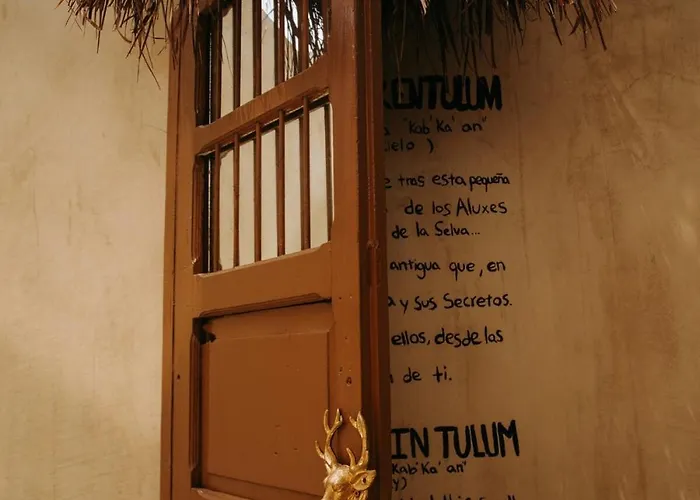 EN TULUM
"Kab'Ka'an"
ielo )
tras esta pequeña
de los Aluxes
de la Selva...
antigua que, en
y sus Secretos.
ellos, desde las
de ti.
IN TULUM
Kab'Ka'an"
y)